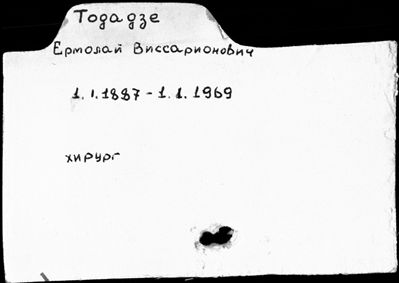 Тодадзе
Ермолай Виссарионович
1.1.1887 - 1.1.1969
хирург